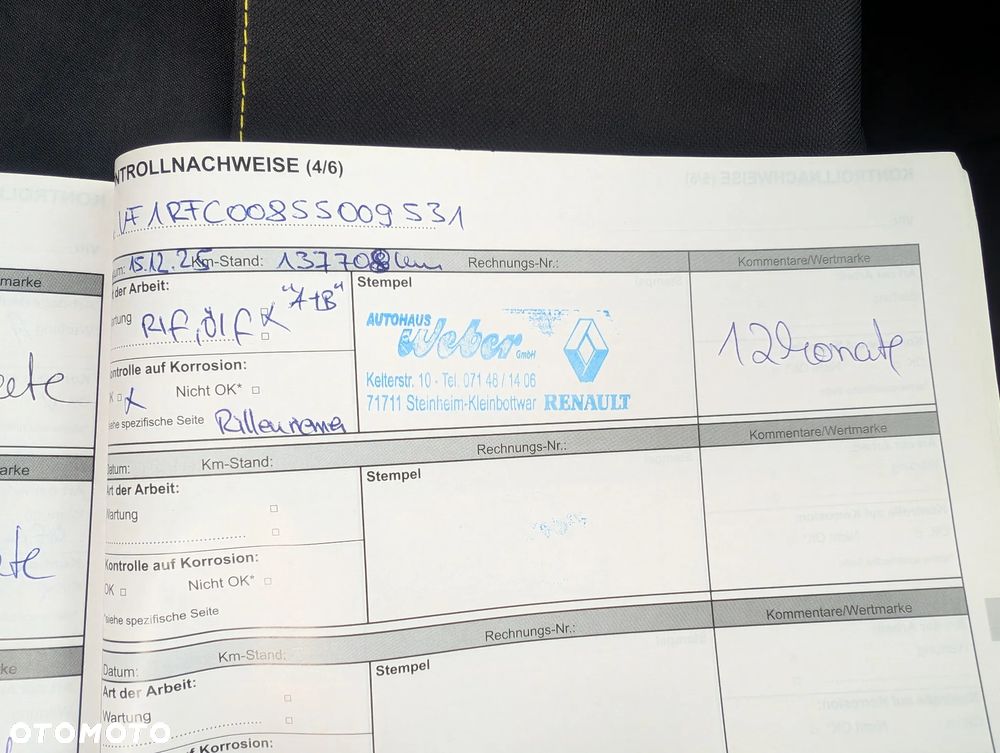 NTROLLNACHWEISE (4/6)
VF1RFC00855009531
um: 15.12.25 Km-Stand: 137708 km Rechnungs-Nr.: Kommentare/Wertmarke
der Arbeit: "A+B" Stempel
rtung RIF, Ölf
AUTOHAUS
Weber GmbH
Kelterstr. 10 - Tel. 071 48 / 14 06
71711 Steinheim-Kleinbottwar RENAULT
12 Monate
ontrolle auf Korrosion:
K Nicht OK*
iehe spezifische Seite
atum: Km-Stand: Rechnungs-Nr.: Kommentare/Wertmarke
rt der Arbeit: Stempel
Wartung
Kontrolle auf Korrosion:
OK Nicht OK*
*siehe spezifische Seite
Datum: Km-Stand: Rechnungs-Nr.: Kommentare/Wertmarke
Art der Arbeit: Stempel
Wartung
f Korrosion:
marke
arke
ke
OTOMOTO